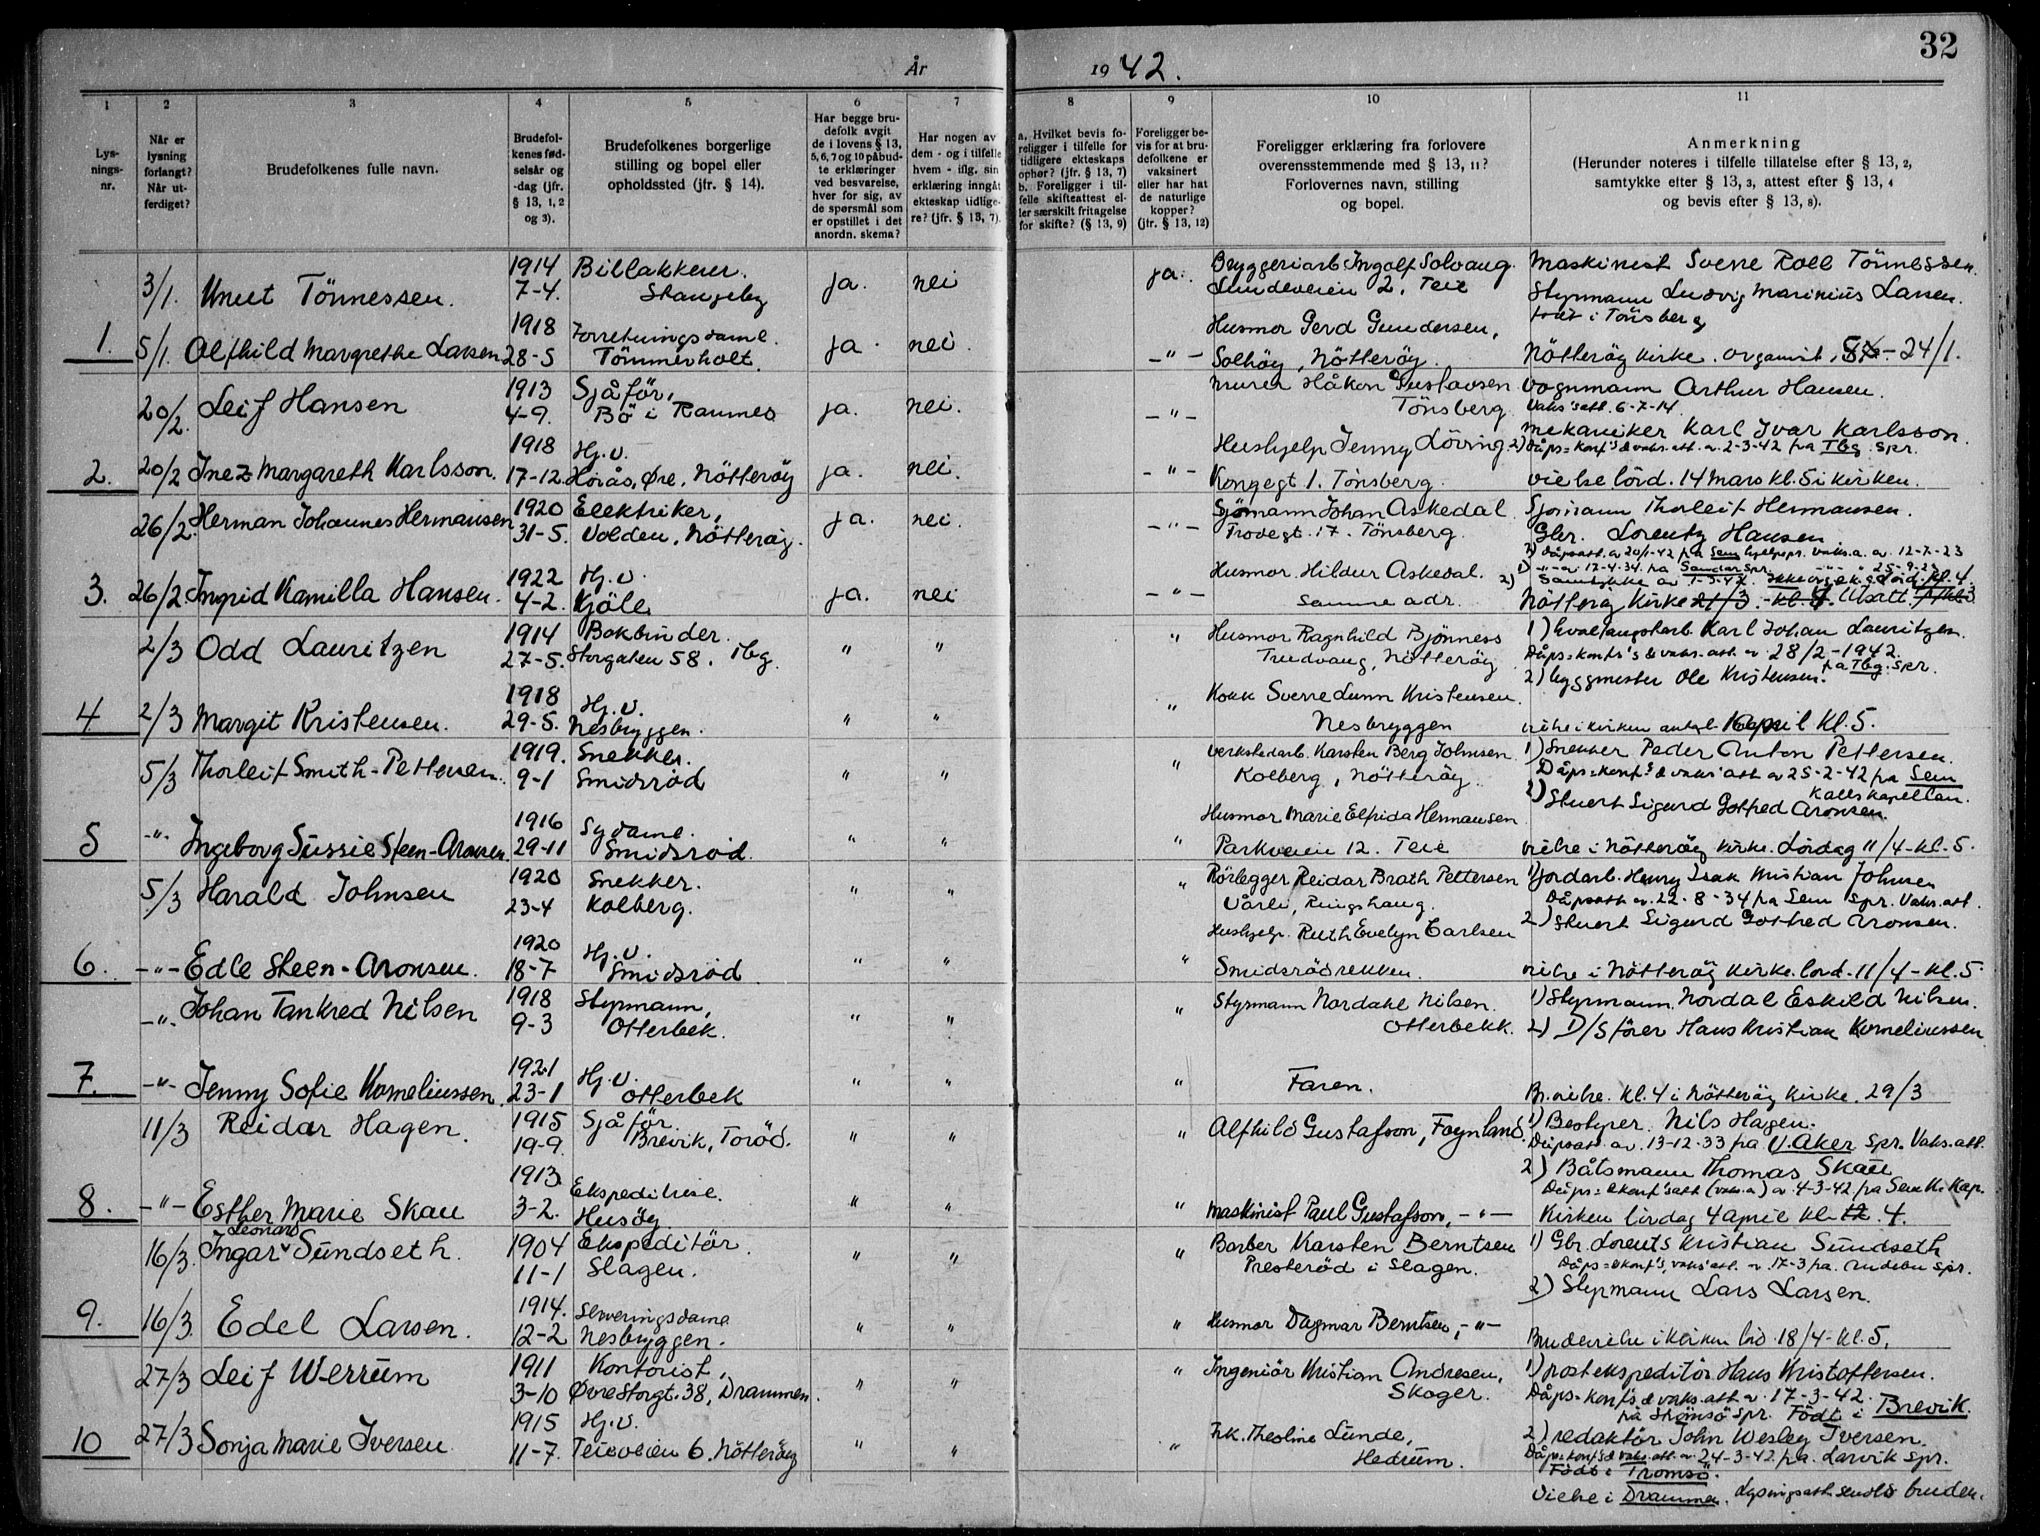 32
År 1942.
1
2
3
4
5
6
7
8
9
10
11
Lysningsnr.
Når er lysning forlangt? Når utferdiget?
Brudefolkenes fulle navn.
Brudefolkenes fødselsår og -dag (jfr. § 13, 1, 2 og 3).
Brudefolkenes borgerlige stilling og bopel eller opholdssted (jfr. § 14).
Har begge brudefolk avgit de i lovens § 13, 5, 6, 7 og 10 påbudte erklæringer ved besvarelse, hver for sig, av de spørsmål som er opstillet i det anordn. skema?
Har nogen av dem - og i tilfelle hvem - iflg. sin erklæring inngått ekteskap tidligere? (jfr. § 13, 7).
a. Hvilket bevis foreligger i tilfelle for tidligere ekteskaps ophør? (jfr. § 13, 7) b. Foreligger i tilfelle skifteattest eller særskilt fritagelse for skifte? (§ 13, 9)
Foreligger bevis for at brudefolkene er vaksinert eller har hat de naturlige kopper? (jfr. § 13, 12)
Foreligger erklæring fra forlovere overensstemmende med § 13, 11? Forlovernes navn, stilling og bopel.
Anmerkning (Herunder noteres i tilfelle tillatelse efter § 13, 2, samtykke efter § 13, 3, attest efter § 13, 4 og bevis efter § 13, 8).
3/1. Knut Tönnessen. 1914 7-4. Billakkerer. Skaugeby ja. nei ja. Bryggeriarb. Ingolf Solvang. Lundeveien 2, Teie Maskinist Sverre Roll Tönnessen.
Styrmann Ludvig Marinius Larsen.
født i Tönsberg
1. 5/1. Alfhild Margrethe Larsen 1918 28-5 Forretningsdame. Tömmerholt. ja. nei. -"- Husmor Gerd Gundersen, Solhöy, Nötteröy. Nötteröy Kirke. organist, - 24/1.
20/2. Leif Hansen 1913 4-9. Sjåför, Bö i Ramnes ja. nei. -"- Murer Håkon Gustavsen Tönsberg Vognmann Arthur Hansen.
Vaks'att. 6-7-14.
Mekaniker Karl Ivar Karlsson.
2. 20/2 Inez Margareth Karlsson. 1918 17-12. Hj.v. Höiås, Øre, Nötteröy ja. nei. -"- Hushjelp Jenny Lövring. Kongegt 1. Tönsberg. 2) Dåps= konf's & vaks. att. av 2-3-42 fra Tbg. spr.
vielse lörd. 14 mars kl. 5 i kirken.
26/2. Herman Johannes Hermansen 1920 31-5. Elektriker, Volden, Nötteröy. ja. nei. -"- Sjömann Johan Askedal Provegt. 17. Tönsberg. Sjömann Thorleif Hermansen.
Gbr. Lorentz Hansen
3. 26/2. Ingrid Kamilla Hansen. 1922 4-2. Hj.v. Kjöle. ja. nei -"- Husmor Hildur Askedal. Samme adr. Nötteröy Kirke 21/3. - kl.
2/3 Odd Lauritzen 1914 27-5. Bokbinder. Storgaten 58. Tbg. " " " Husmor Ragnhild Bjönness Trudvang, Nötteröy 1) hvalfangstarb. Karl Johan Lauritzen.
Dåps= konf's & vaks. att. av 28/2-1942. fra Tbg. spr.
2) byggmester Ole Kristensen.
4. 2/3 Margit Kristensen. 1918 29-5. Hj.v. Nesbryggen. " " " Kokk Sverre Lunn Kristensen. Nesbryggen vielse i kirken april kl. 5.
5/3 Thorleif Smith-Pettersen. 1919. 9-1 Snekker. Smidsröd " " " Verkstedarb. Karsten Berg Johnsen Kolberg, Nötteröy. 1) Snekker Peder Anton Pettersen.
Dåps= konf's & vaks'att av 25-2-42 fra Sem Kallskapellan.
2) Stuert Sigurd Gotfred Aronsen.
5 -"- Ingeborg Sussie Steen-Aronsen 1916 29-11 Sydame. Smidsröd. " " Husmor Marie Elfrida Hermansen Parkveien 12. Teie vielse i Nötteröy Kirke. Lördag 11/4 - kl. 5.
5/3 Harald Johnsen 1920 23-4 Snekker. Kolberg. " " " Rörlegger Reidar Brath Pettersen Vårli, Ringshaug. 1) Jordarb. Henry Isak Kristian Johnsen
Dåpsatt av 22-8-34 fra Sem spr. Vaks. att.
2) Stuert Sigurd Gotfred Aronsen.
6. -"- Edle Steen-Aronsen. 1920 18-7 Hj.v. Smidsröd " " " Hushjelp. Ruth Evelyn Carlsen Smidsrödrekken. vielse i Nötteröy Kirke. lörd. 11/4 - kl. 5
-"- Johan Tankred Nilsen 1918 9-3 Styrmann, Otterbek. " " " Styrmann Nordahl Nilsen. Otterbekk. 1) Styrmann Nordal Eskild Nilsen.
2) D/S förer Hans Kristian Korneliussen
7. -"- Jenny Sofie Korneliussen. 1921 23-1 Hj.v. Otterbek " " " Faren. Br.vielse. kl. 4 i Nötteröy Kirke. 29/3
11/3 Reidar Hagen. 1915 19-9. Sjåför. Brevik, Torød. " " " Alfhild Gustafson, Föynland. 1) Bestyrer. Nils Hagen.
Dåpsatt. av 13-12-33 fra V. Aker spr. Vaks. att.
2) Båtsmann Thomas Skau
Dåps= & konf'satt (vaks.a) av 4-3-42 fra Sem Kap.
8. -"- Esther Marie Skau 1913 3-2. Ekspeditrise. Husöy " " " Maskinist Paul Gustafson, -"- Kirken lördag 4 april kl. 4.
16/3. Ingar Leonard Sundseth. 1904 11-1 Ekspeditör. Slagen. " " " Barber Karsten Berntsen Presteröd i Slagen. 1) Gbr. Lorents Kristian Sundseth
Dåps= & konf's, vaks'att. av 17-3 fra. Andebu spr.
2) Styrmann Lars Larsen.
9. 16/3. Edel Larsen. 1914. 12-2 Serveringsdame Nesbryggen. " " " Husmor Dagmar Berntsen, -"- Brudevielse i kirken lörd. 18/4 - kl. 5.
27/3 Leif Werrum 1911 3-10 Kontorist, Øvre Storgt. 38, Drammen. " " " Ingeniör Kristian Andresen, Skoger. 1) postekspeditör Hans Kristoffersen.
Dåps= konf's & vaks. att. av 17-3-42.
fra Strömsö spr. Födt i Brevik.
10 27/3 Sonja Marie Iversen 1915 11-7. Hj.v. Teieveien 6. Nötteröy " " " Frk. Theoline Lunde, Hedrum. 2) redaktör John Wesley Iversen.
Dåps= konf's & vaks. att. av 24-3-42 fra. Larvik spr.
Födt i Tromsö.
Vielse i Drammen. Lysningsatt. sendt bruden.